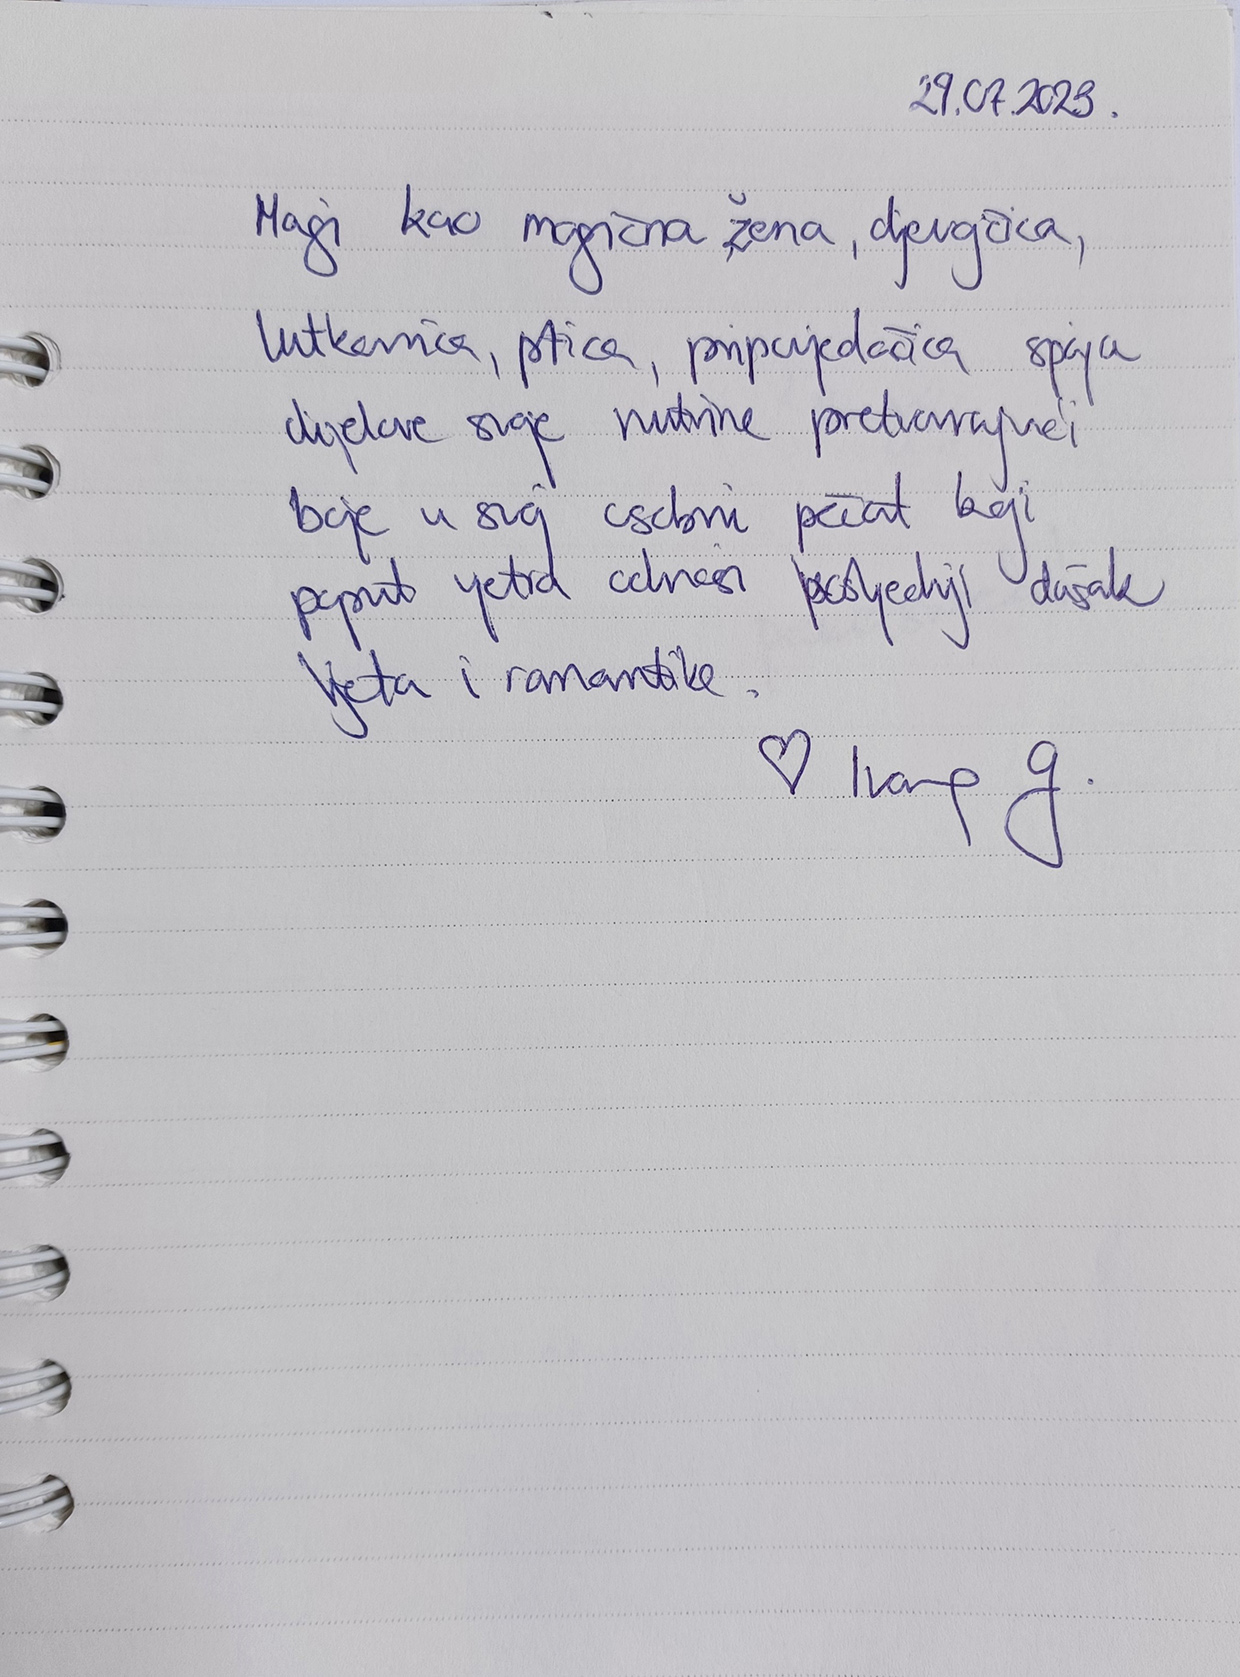 29.07.2023.
Magi kao magična žena, djevojčica,
lutkarnica, ptica, pripovjedačica spaja
dijelove svoje nutrine pretvarajući
boje u svoj osobni pečat koji
poput vjetra odnosi posljednji dašak
ljeta i romantike.
♡ Ivana G.